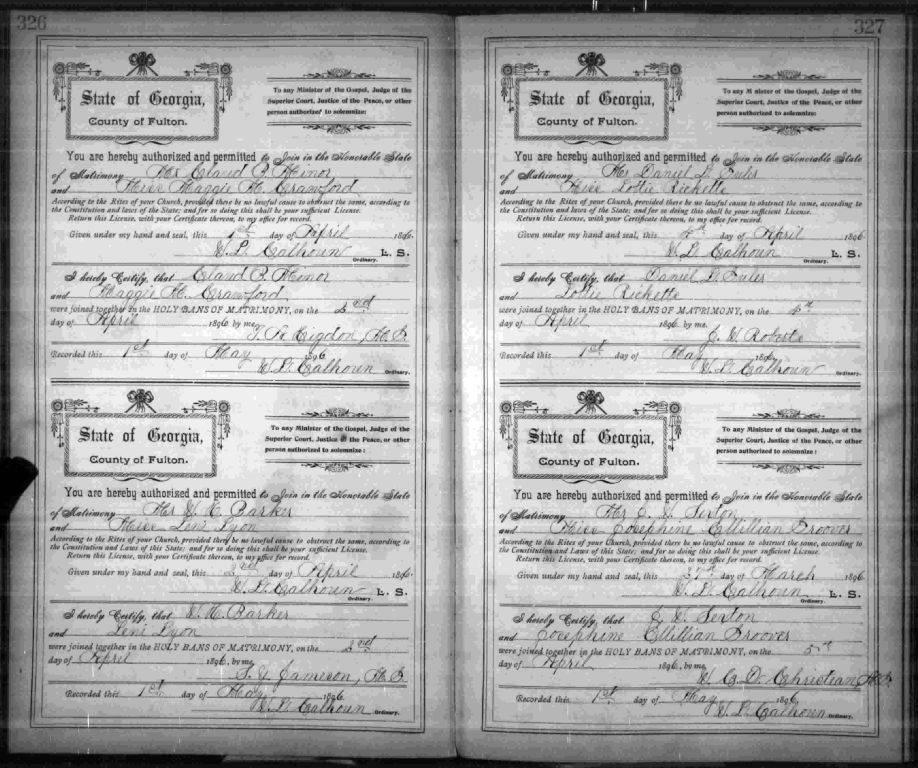 326
State of Georgia,
County of Fulton.
To any Minister of the Gospel, Judge of the
Superior Court, Justice of the Peace, or other
person authorized to solemnize:
You are hereby authorized and permitted to Join in the Honorable State
of Matrimony Mr Claud P. Minor
and Miss Maggie M. Crawford
According to the Rites of your Church, provided there be no lawful cause to obstruct the same, according to
the Constitution and laws of the State; and for so doing this shall be your sufficient License.
Return this License, with your Certificate thereon, to my office for record.
Given under my hand and seal, this 1st day of April 1896.
W. L. Calhoun L. S.
Ordinary.
I hereby Certify, that Claud P. Minor
and Maggie M. Crawford
were joined together in the HOLY BANS OF MATRIMONY, on the 2nd
day of April 1896 by me,
Recorded this 1st day of May 1896
W. L. Calhoun Ordinary.
State of Georgia,
County of Fulton.
To any Minister of the Gospel, Judge of the
Superior Court, Justice of the Peace, or other
person authorized to solemnize:
You are hereby authorized and permitted to Join in the Honorable State
of Matrimony Mr Barker
and Miss Leni Lyon
According to the Rites of your Church, provided there be no lawful cause to obstruct the same, according to
the Constitution and Laws of this State; and for so doing this shall be your sufficient License.
Return this License, with your Certificate thereon, to my office for record.
Given under my hand and seal, this 2nd day of April 1896.
W. L. Calhoun L. S.
Ordinary.
I hereby Certify, that Barker
and Leni Lyon
were joined together in the HOLY BANS OF MATRIMONY, on the 2nd
day of April 1896, by me,
Jameson, M.G.
Recorded this 1st day of May 1896
W. L. Calhoun Ordinary.
327
State of Georgia,
County of Fulton.
To any Minister of the Gospel, Judge of the
Superior Court, Justice of the Peace, or other
person authorized to solemnize:
You are hereby authorized and permitted to Join in the Honorable State
of Matrimony Mr Daniel
and Miss Lottie Ricketts
According to the Rites of your Church, provided there be no lawful cause to obstruct the same, according to
the Constitution and laws of this State; and for so doing this shall be your sufficient License.
Return this License, with your Certificate thereon, to my office for record.
Given under my hand and seal, this day of April 1896
W. L. Calhoun L. S.
Ordinary.
I hereby Certify, that Daniel
and Lottie Ricketts
were joined together in the HOLY BANS OF MATRIMONY, on the
day of April 1896, by me,
Roberts
Recorded this 1st day of May 1896,
W. L. Calhoun Ordinary.
State of Georgia,
County of Fulton.
To any Minister of the Gospel, Judge of the
Superior Court, Justice of the Peace, or other
person authorized to solemnize:
You are hereby authorized and permitted to Join in the Honorable State
of Matrimony Mr Sexton
and Miss Josephine Ellillian Groover
According to the Rites of your Church, provided there be no lawful cause to obstruct the same, according to
the Constitution and Laws of this State; and for so doing this shall be your sufficient License.
Return this License, with your Certificate thereon, to my office for record.
Given under my hand and seal, this day of March 1896
W. L. Calhoun L. S.
Ordinary.
I hereby Certify, that Sexton
and Josephine Ellillian Groover
were joined together in the HOLY BANS OF MATRIMONY, on the 5th
day of April 1896, by me,
W. C. D. Christian, M.G.
Recorded this 1st day of May 1896,
W. L. Calhoun Ordinary.